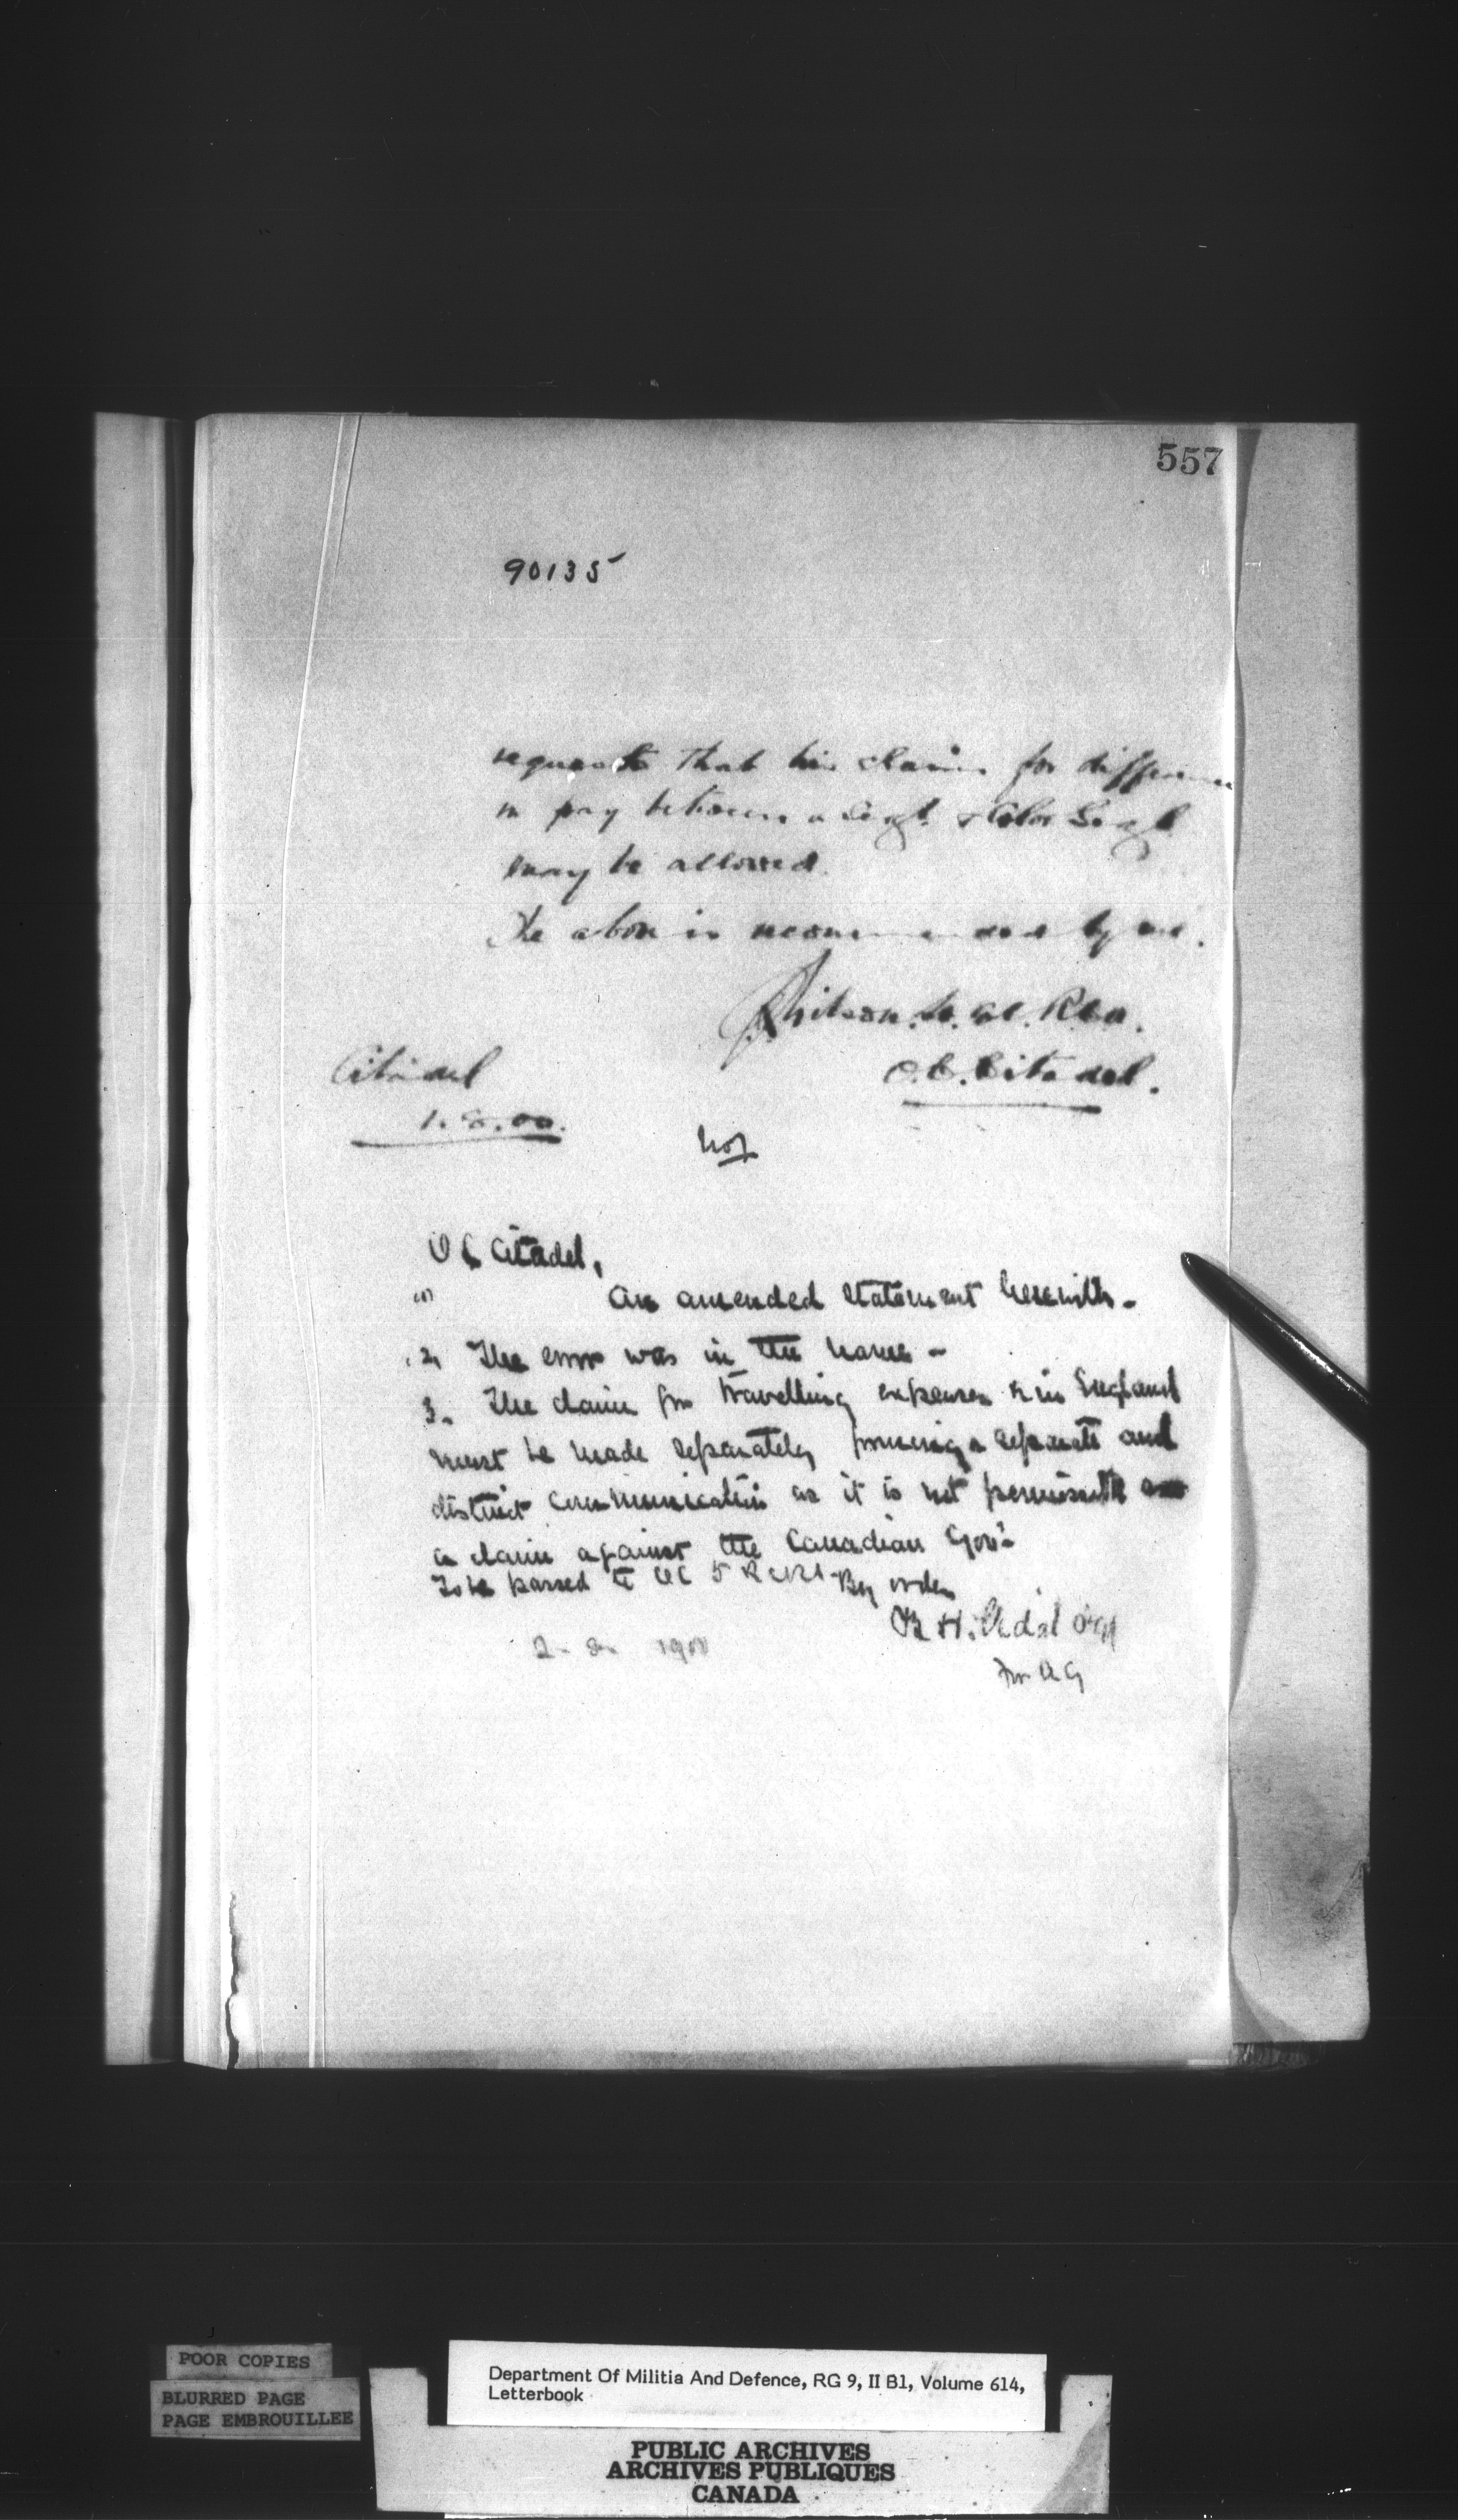 557
90135
requests that his claim for difference
in pay between a Sergt. & Color Sergt
may be allowed.
The above is recommended by me.
Wilson. Lt. Col. RCA.
Citadel O.C. Citadel.
1.8.00.
OC Citadel,
(1) An amended statement herewith.
2, The error was in the name -
3. The claim for travelling expenses in England
must be made separately forming a separate and
distinct communication as it is not permissible
a claim against the Canadian Govt
To be passed to OC 5 RCA By order
B H. Vidal
2-8-1900
for AG
POOR COPIES
BLURRED PAGE
PAGE EMBROUILLEE
Department Of Militia And Defence, RG 9, II B1, Volume 614,
Letterbook
PUBLIC ARCHIVES
ARCHIVES PUBLIQUES
CANADA